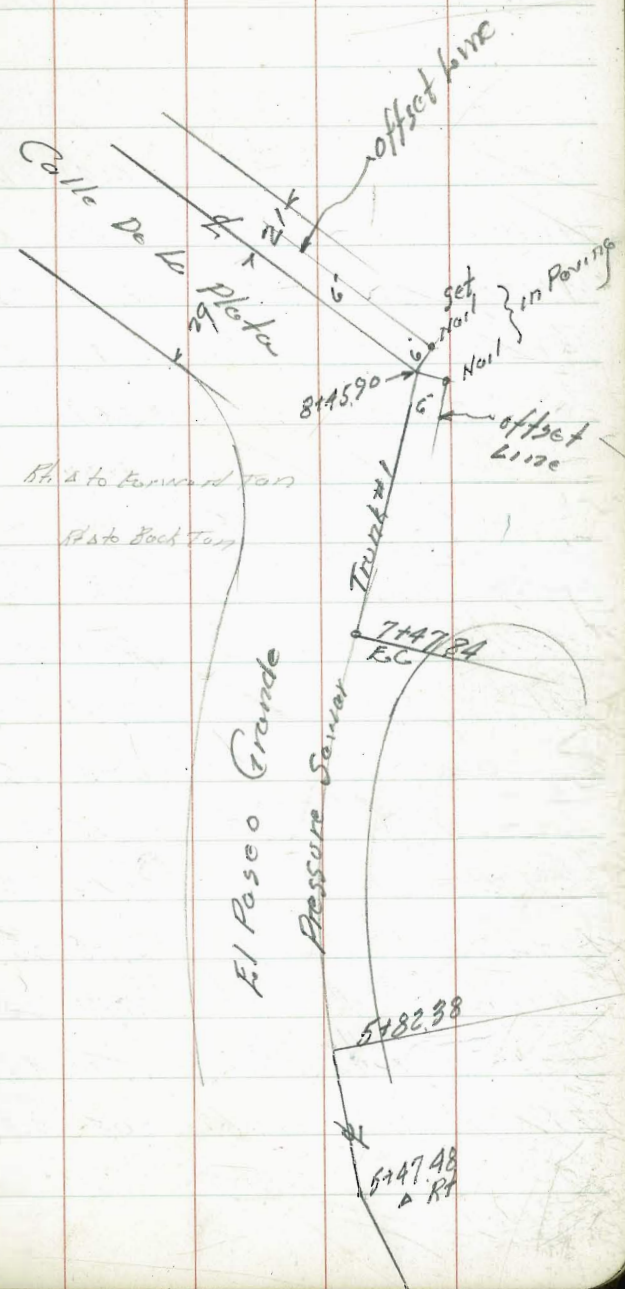 offset Line
Calle De La Plata
℄
21'
6'
29
Set
Nail
in Paving
Nail
6'
6'
8+45.90
offset
Line
Rt. Δ to Forward Tan
Rt Δ to Back Tan
Trunk #1
7+47.84
E.C
El Paseo Grande
Pressure Sewer
5+82.38
℄
5+47.48
Δ Rt